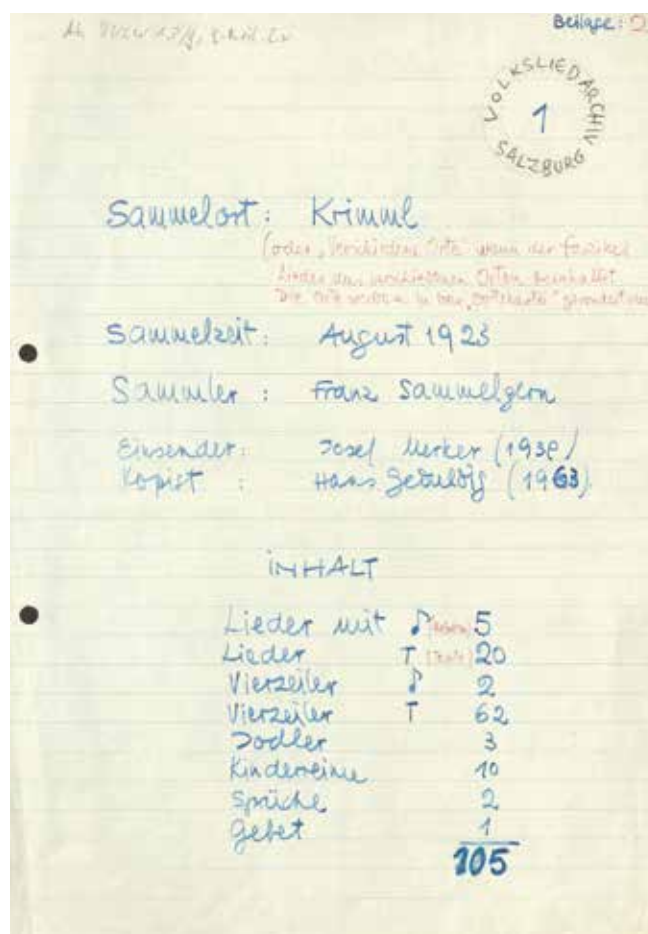 Beilage: 2
VOLKSLIEDARCHIV
1
SALZBURG
Sammelort: Krimml
(oder "Verschiedene Orte" wenn der Faszikel
Lieder aus verschiedenen Orten beinhaltet.
Die Orte werden in der "Ortskartei"
Sammelzeit: August 1923
Sammler: Franz Sammelgern
Einsender: Josef Merker (1939)
Kopist: Hans Geduldig (1963)
INHALT
Lieder mit ♪ (Noten) 5
Lieder T (Texte) 20
Vierzeiler ♪ 2
Vierzeiler T 62
Jodler 3
Kinderreime 10
Sprüche 2
Gebet 1
105